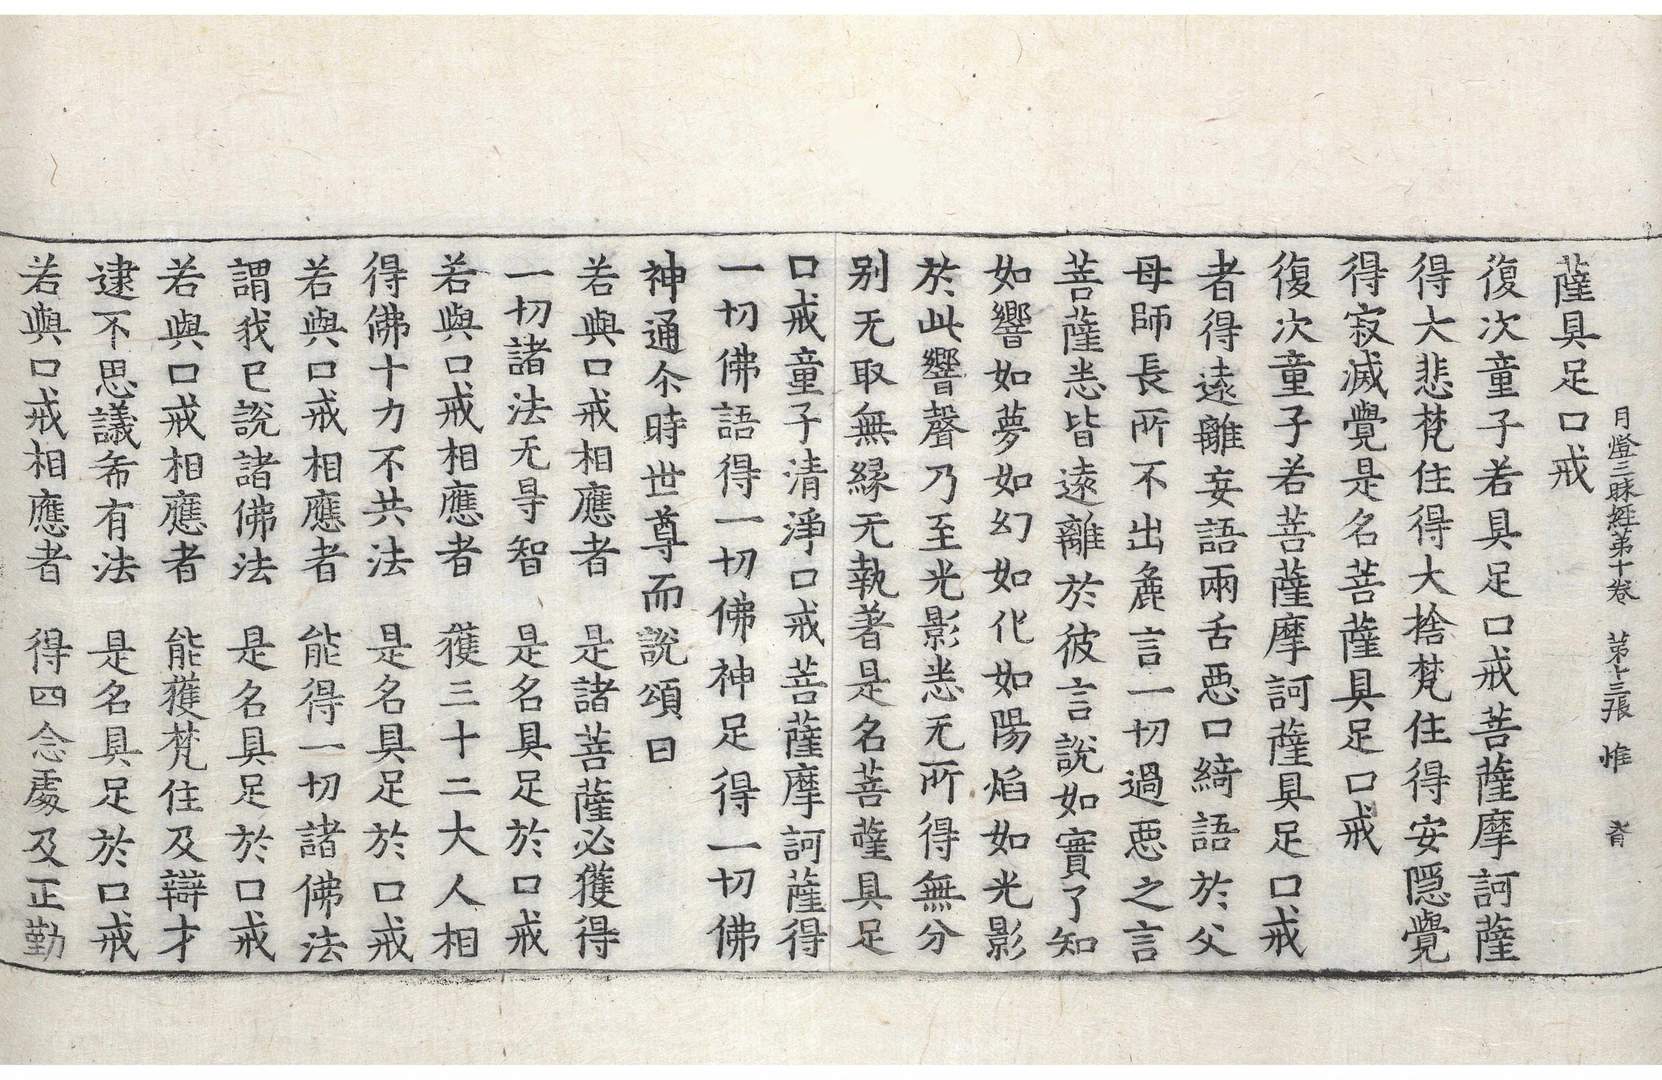 月燈三昧經第十卷　第十三張　惟
薩具足口戒
復次童子若具足口戒菩薩摩訶薩
得大悲梵住得大捨梵住得安隱覺
得寂滅覺是名菩薩具足口戒
復次童子若菩薩摩訶薩具足口戒
者得遠離妄語兩舌惡口綺語於父
母師長所不出麁言一切過惡之言
菩薩悉皆遠離於彼言說如實了知
如響如夢如幻如化如陽焰如光影
於此響聲乃至光影悉无所得無分
别无取無緣无執著是名菩薩具足
口戒童子清淨口戒菩薩摩訶薩得
一切佛語得一切佛神足得一切佛
神通尒時世尊而說頌曰
若與口戒相應者　是諸菩薩必獲得
一切諸法无㝵智　是名具足於口戒
若與口戒相應者　獲三十二大人相
得佛十力不共法　是名具足於口戒
若與口戒相應者　能得一切諸佛法
謂我已說諸佛法　是名具足於口戒
若與口戒相應者　能獲梵住及辯才
逮不思議希有法　是名具足於口戒
若與口戒相應者　得四念處及正勤